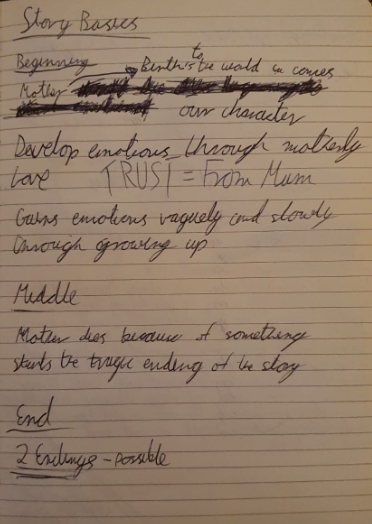 Story Basics
Beginning
Births to the world in comes
Mother
our character
Develop emotions through motherly
love TRUST = From Mum
Gains emotions vaguely and slowly
through growing up
Middle
Mother dies because of something
starts the tragic ending of the story
End
2 Endings - possible